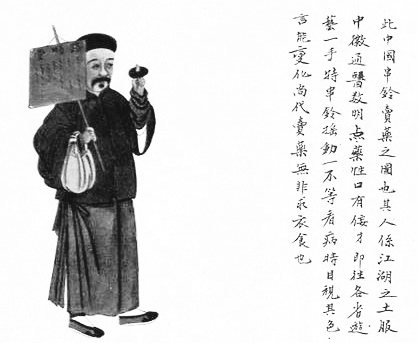 此中國串鈴賣藥之圖也其人係江湖之士服
中微通醫数明点藥性口有佞才即往各省遊
藝一手持串鈴搖動一不等看病時目視其色
言能變化尚代賣藥無非求衣食也